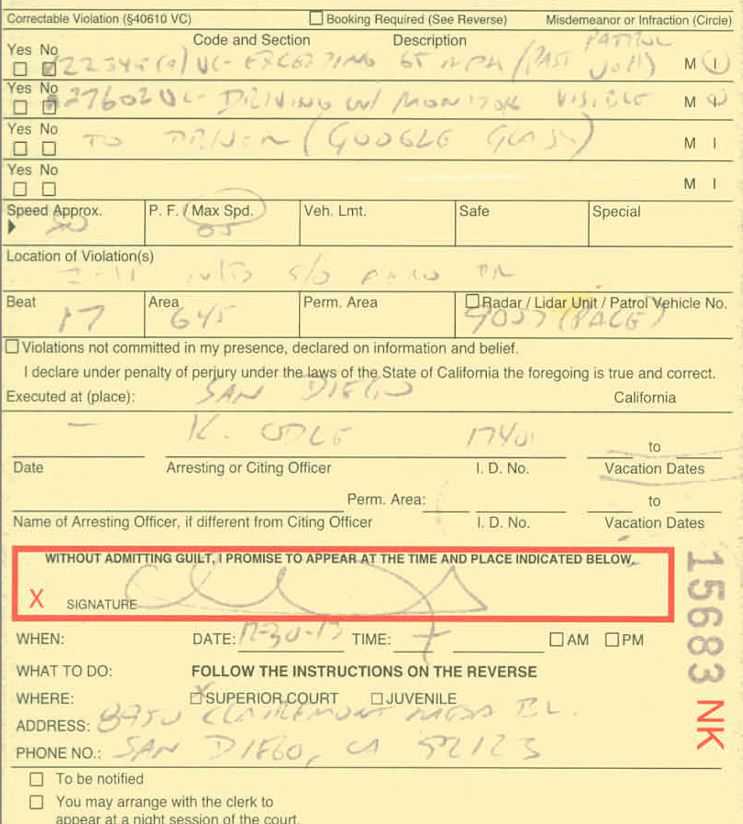 Correctable Violation (§40610 VC) Booking Required (See Reverse) Misdemeanor or Infraction (Circle)
Yes No Code and Section Description PATROL
22349(a) VC- EXCEEDING 65 MPH (PAST M I
Yes No
27602 VC- DRIVING W/ MONITOR VISIBLE M I
Yes No
TO DRIVER (GOOGLE GLASS) M I
Yes No
M I
Speed Approx. P. F. / Max Spd. Veh. Lmt. Safe Special
65
Location of Violation(s)
S/O
Beat Area Perm. Area Radar / Lidar Unit / Patrol Vehicle No.
17 645 (PACE)
Violations not committed in my presence, declared on information and belief.
I declare under penalty of perjury under the laws of the State of California the foregoing is true and correct.
Executed at (place): SAN DIEGO California
K. ODLE 17401 to
Date Arresting or Citing Officer I. D. No. Vacation Dates
Perm. Area: to
Name of Arresting Officer, if different from Citing Officer I. D. No. Vacation Dates
WITHOUT ADMITTING GUILT, I PROMISE TO APPEAR AT THE TIME AND PLACE INDICATED BELOW.
X SIGNATURE
WHEN: DATE: 12-30-13 TIME: AM PM
WHAT TO DO: FOLLOW THE INSTRUCTIONS ON THE REVERSE
WHERE: X SUPERIOR COURT JUVENILE
ADDRESS: 8950 CLAIREMONT MESA BL.
PHONE NO.: SAN DIEGO, CA 92123
To be notified
You may arrange with the clerk to
appear at a night session of the court.
15683 NK